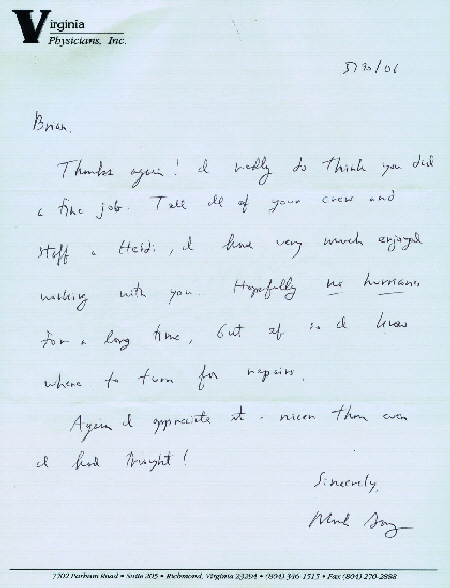 Virginia
Physicians, Inc.
5/30/06
Brian,
Thanks again! I really do think you did
a fine job. Tell all of your crew and
staff & Heidi, I have very much enjoyed
working with you. Hopefully no hurricanes
for a long time, but if so I know
where to turn for repairs.
Again I appreciate it - nicer than even
I had thought!
Sincerely,
7702 Parham Road • Suite 205 • Richmond, Virginia 23294 • (804) 346-1515 • Fax (804) 270-2888